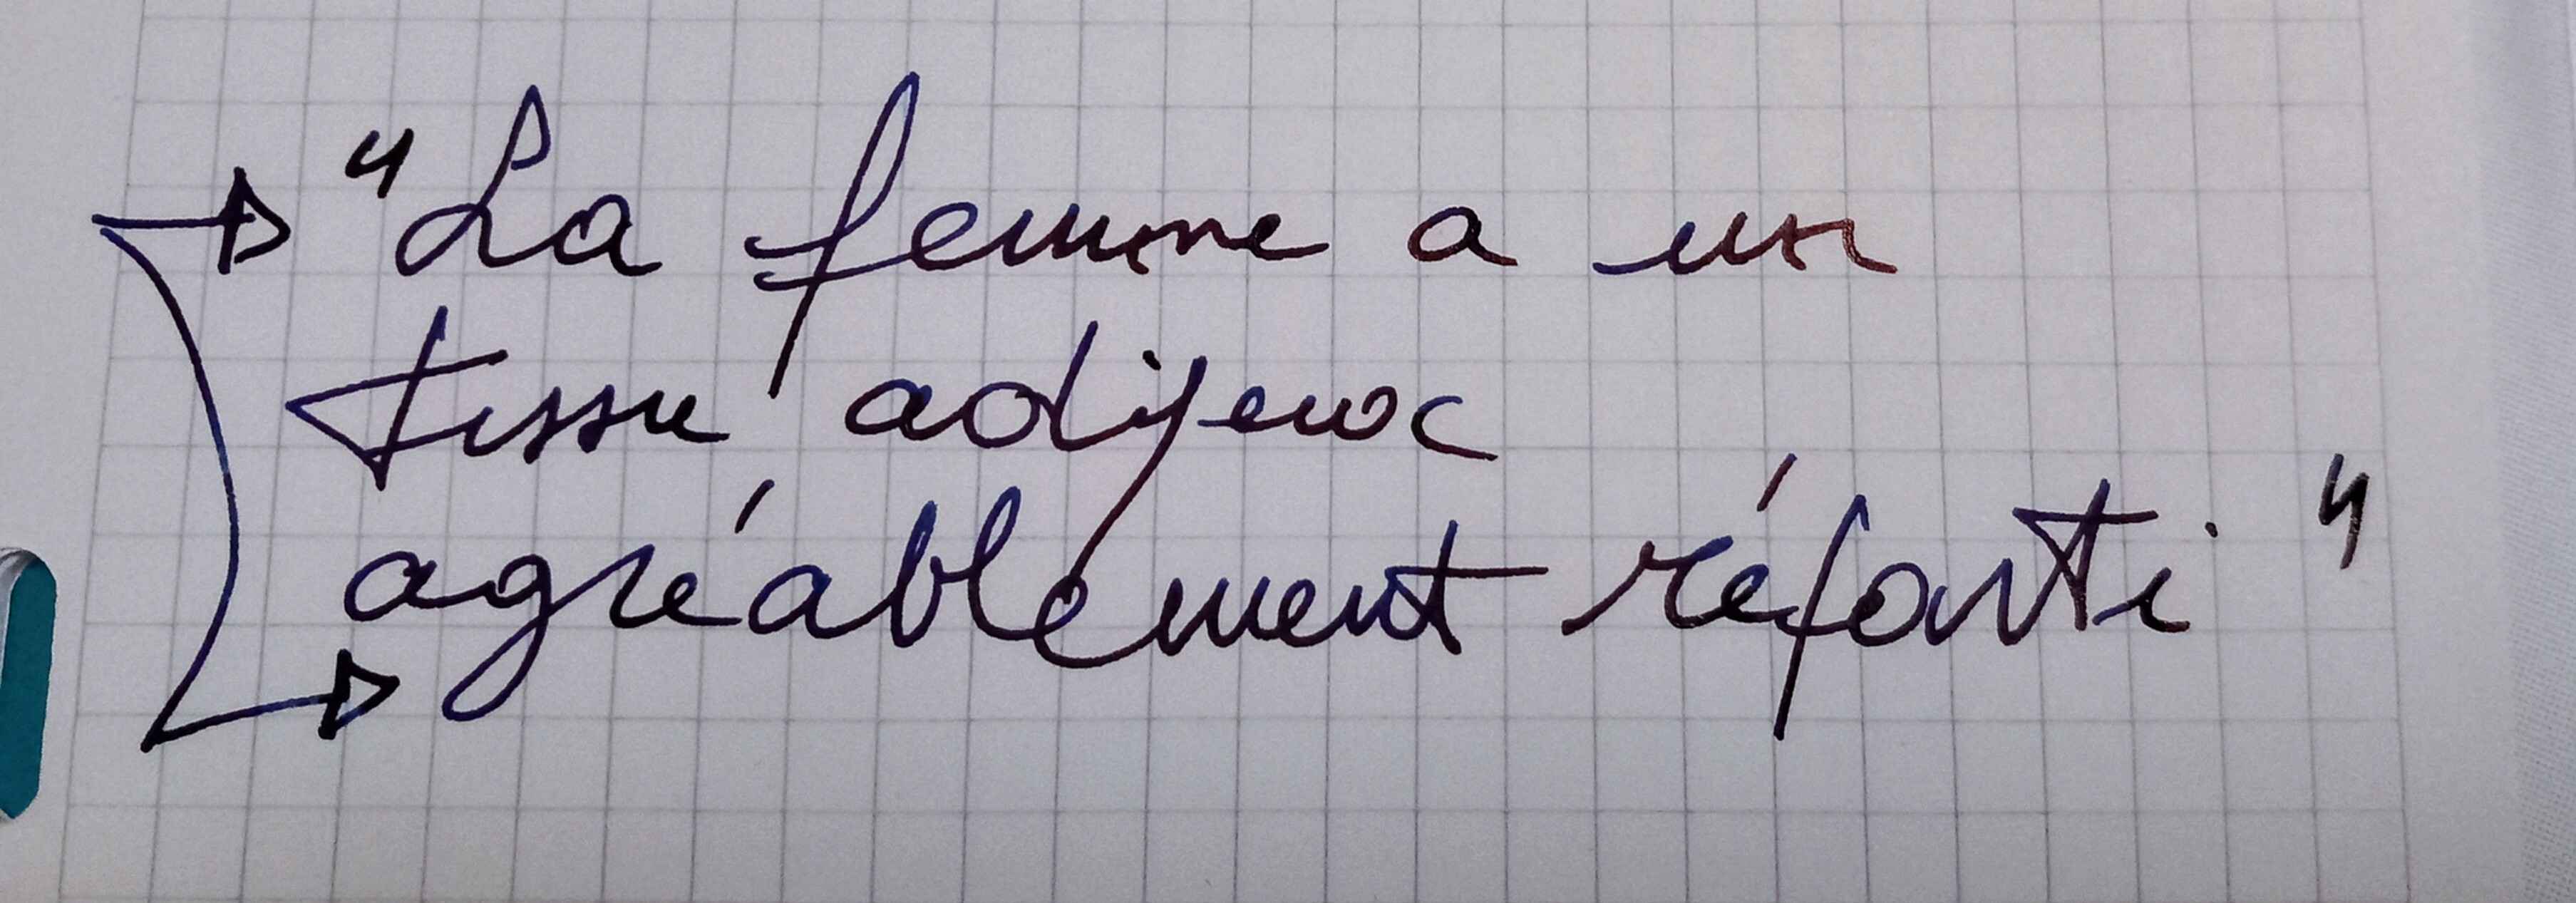 "La femme a un
tissu adijeux
agréablement réforti"